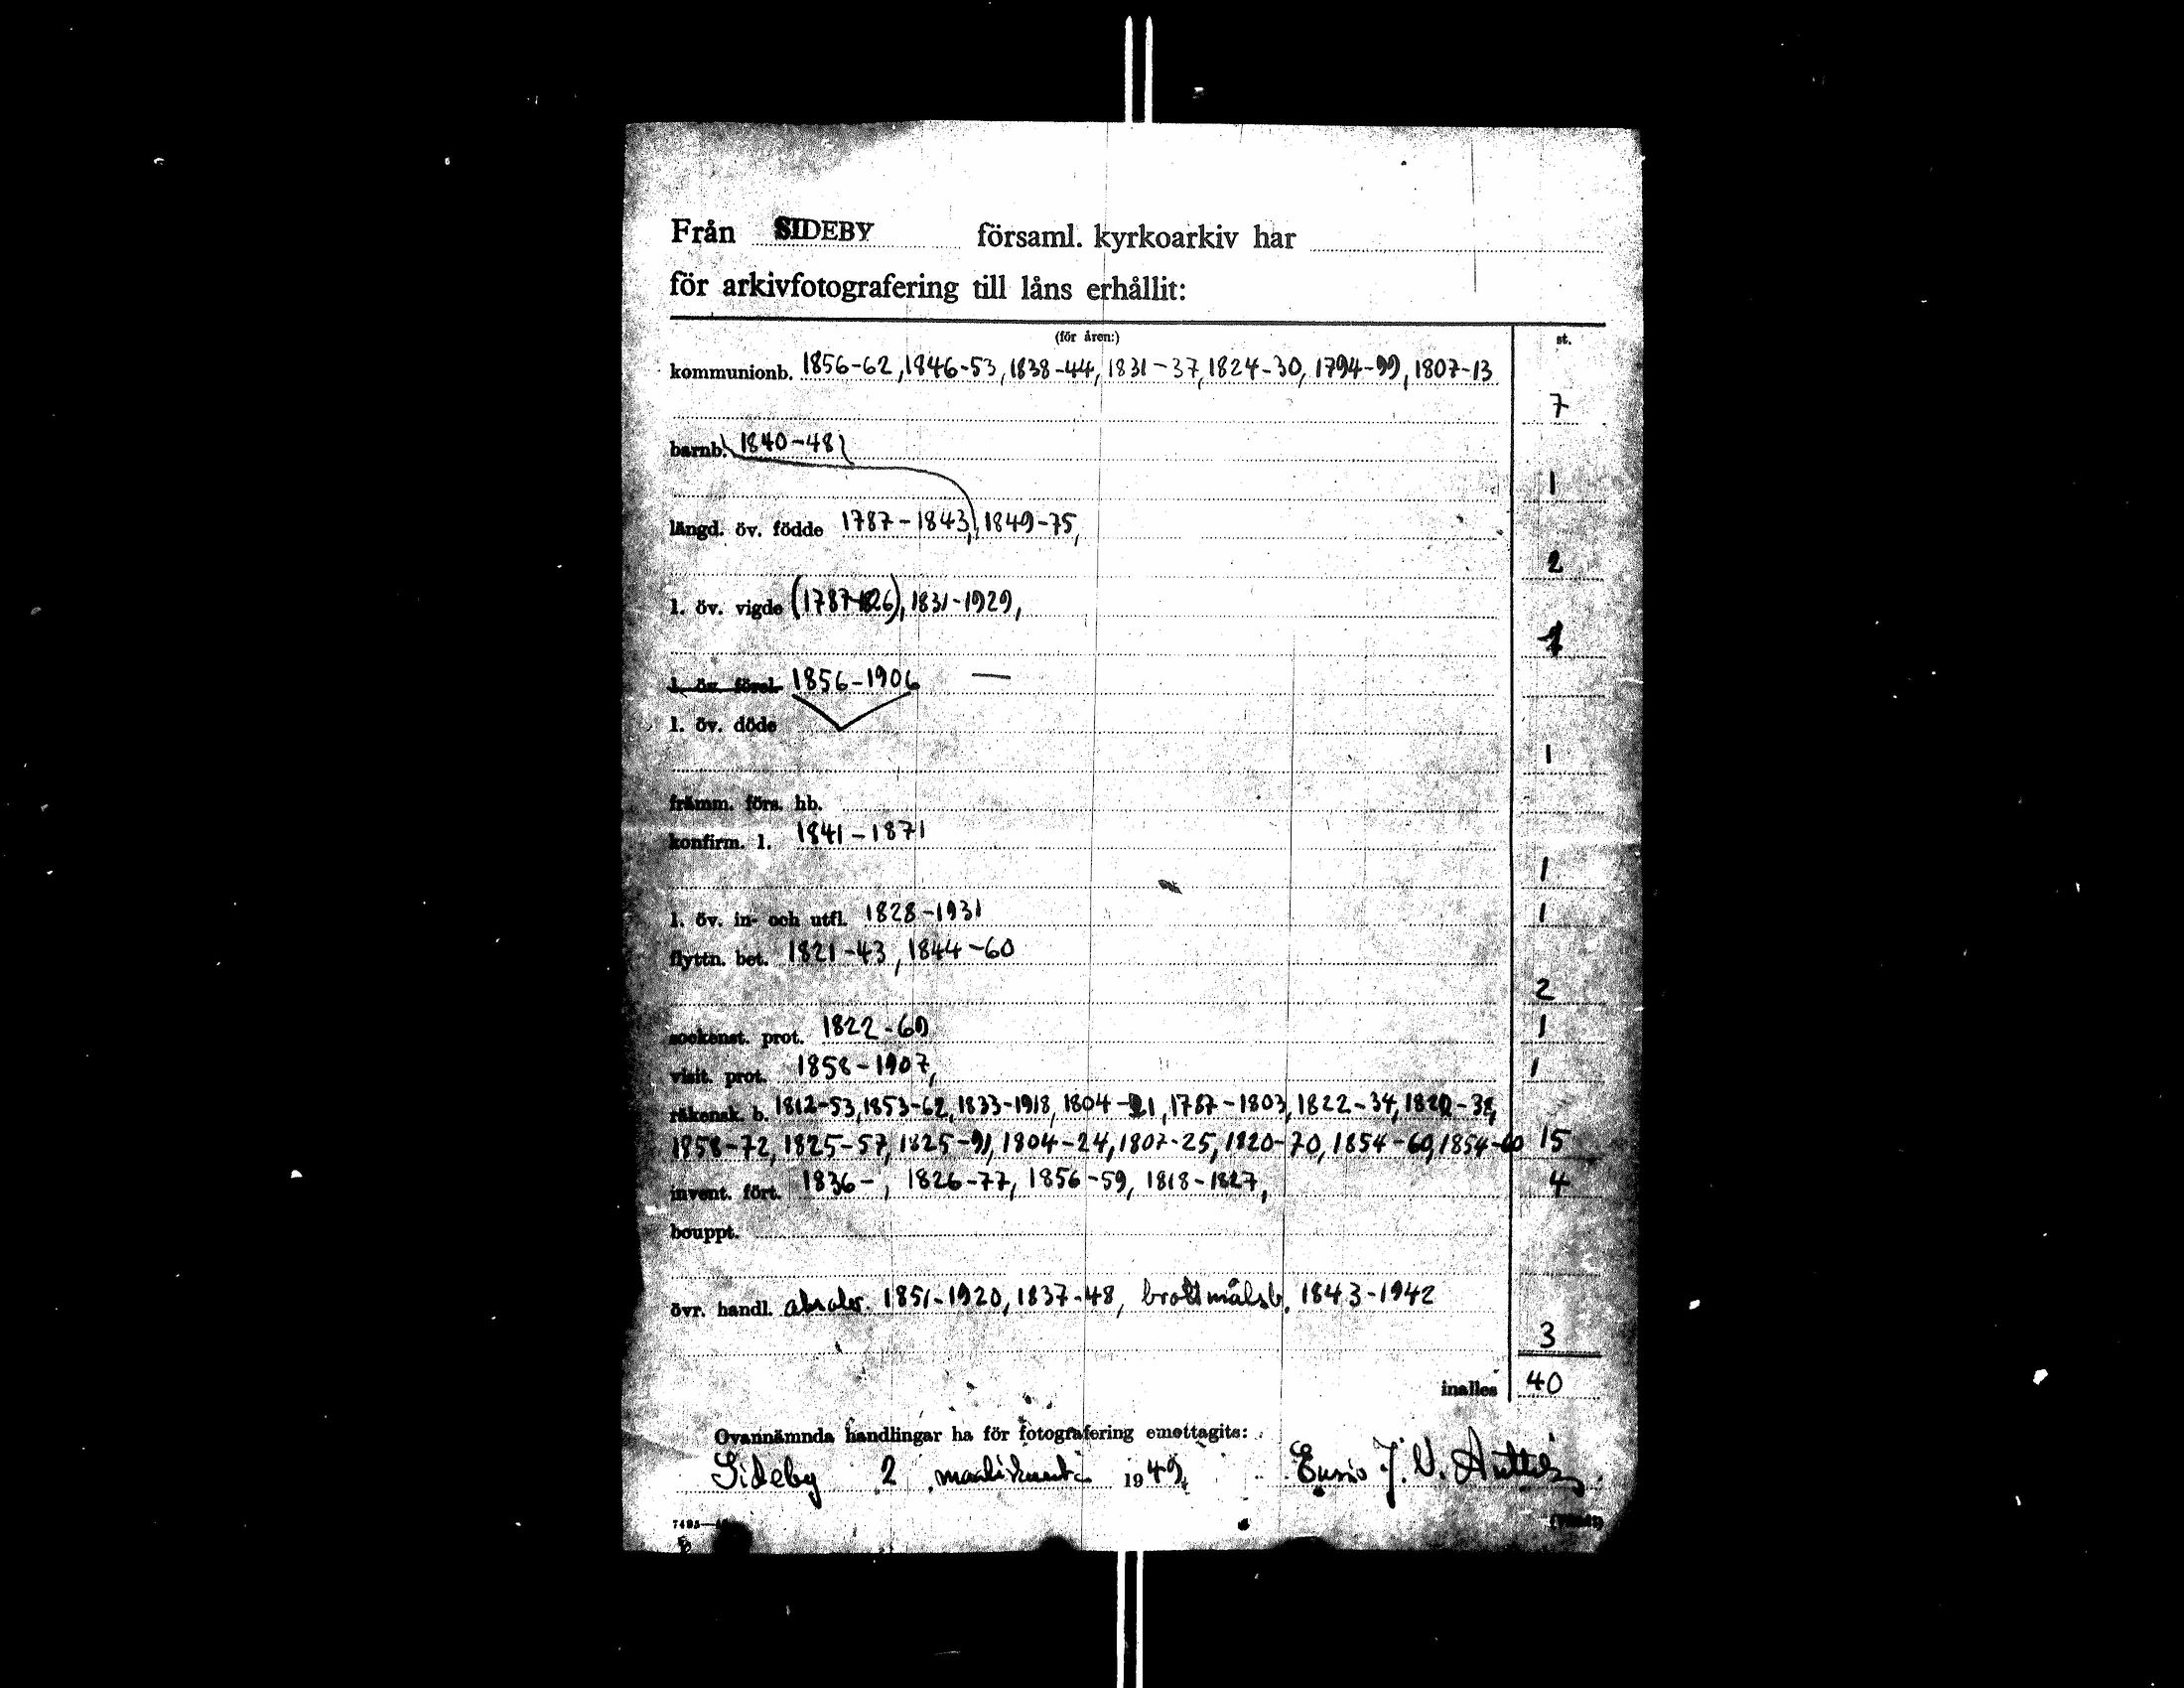 Från SIDEBY församl. kyrkoarkiv har
för arkivfotografering till låns erhållit:
(för åren:) st.
kommunionb. 1856-62, 1846-53, 1838-44, 1831-37, 1824-30, 1794-99, 1807-13
7
barnb. 1840-48
1
längd. öv. födde 1787-1843, 1849-75,
2
l. öv. vigde (1787-1826), 1831-1929,
1
l. öv. förel. 1856-1906 —
l. öv. döde
1
främm. förs. hb.
konfirm. l. 1841-1871
1
l. öv. in- och utfl. 1828-1931 1
flyttn. bet. 1821-43, 1844-60
2
sockenst. prot. 1822-69 1
visit. prot. 1858-1907, 1
räkensk. b. 1812-53, 1853-62, 1833-1918, 1804-21, 1787-1803, 1822-34,
1858-72, 1825-57, 1825-91, 1804-24, 1807-25, 1820-70, 1854-60, 1854-60 15
invent. fört. 1836- , 1826-77, 1856-59, 1818-1827, 4
bouppt.
övr. handl. 1851-1920, 1837-48, brottmålsb. 1843-1942
3
inalles 40
Ovannämnda handlingar ha för fotografering emottagits:
Sideby 2 maaliskuuta 1949